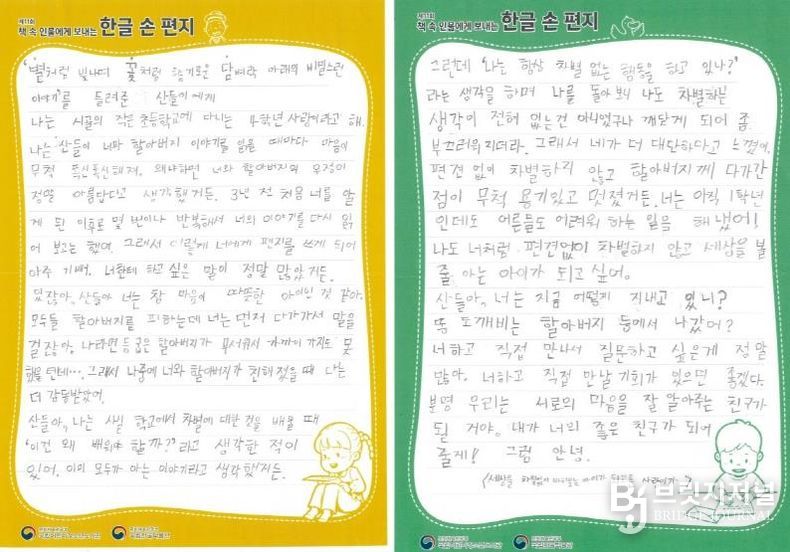 제11회
책 속 인물에게 보내는 한글 손 편지
'별처럼 빛나며 꽃처럼 향기로운 담벼락 아래의 비밀스런
이야기'를 들려준 산들이에게
나는 시골의 작은 초등학교에 다니는 4학년 사랑이라고 해.
나는 산들이 너와 할아버지 이야기를 읽을 때마다 마음이
무척 푹신푹신해져. 왜냐하면 너와 할아버지의 우정이
정말 아름답다고 생각했거든. 3년 전 처음 너를 알
게 된 이후로 몇 번이나 반복해서 너의 이야기를 다시 읽
어 보고는 했어. 그래서 이렇게 너에게 편지를 쓰게 되어
아주 기뻐. 너한테 하고 싶은 말이 정말 많았거든.
있잖아, 산들아 너는 참 마음이 따뜻한 아이인 것 같아.
모두들 할아버지를 피하는데 너는 먼저 다가가서 말을
걸잖아. 나라면 등굽은 할아버지가 무서워서 가까이 가지도 못
했을텐데…. 그래서 나중에 너와 할아버지가 친해졌을 때 나는
더 감동받았어.
산들아, 나는 사실 학교에서 차별에 대한 것을 배울 때
'이건 왜 배워야 할까?'라고 생각한 적이
있어. 이미 모두가 아는 이야기라고 생각했거든.
제11회
책 속 인물에게 보내는 한글 손 편지
그런데 '나는 항상 차별 없는 행동을 하고 있나?'
라는 생각을 하며 나를 돌아 보니 나도 차별하는
생각이 전혀 없는건 아니었구나 깨닫게 되어 좀
부끄러워지더라. 그래서 네가 더 대단하다고 느꼈어.
편견 없이 차별하지 않고 할아버지께 다가간
점이 무척 용기있고 멋졌거든. 너는 아직 1학년
인데도 어른들도 어려워 하는 일을 해냈어!
나도 너처럼 편견없이 차별하지 않고 세상을 볼
줄 아는 아이가 되고 싶어.
산들아, 너는 지금 어떻게 지내고 있니?
또 도깨비는 할아버지 등에서 나갔어?
너하고 직접 만나서 질문하고 싶은게 정말
많아. 너하고 직접 만날 기회가 있으면 좋겠다.
분명 우리는 서로의 마음을 잘 알아주는 친구가
될 거야. 내가 너의 좋은 친구가 되어
줄게! 그럼 안녕.
브릿지저널
BRIDGE JOURNAL